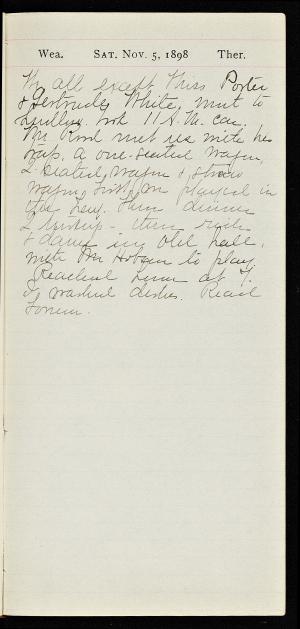 Wea. SAT. NOV. 5, 1898 Ther.
We all except Miss Porter
& Gertrude White, went to
took 11 A.M. car.
Mr met us with his
a one-seated wagon,
2 seated wagon & straw
wagon, first played in
the hay. Then dinner
then
& dance in old hall,
with Mr Hobson to play.
Reached Lynn at 7.
washed dishes. Read
Forum.